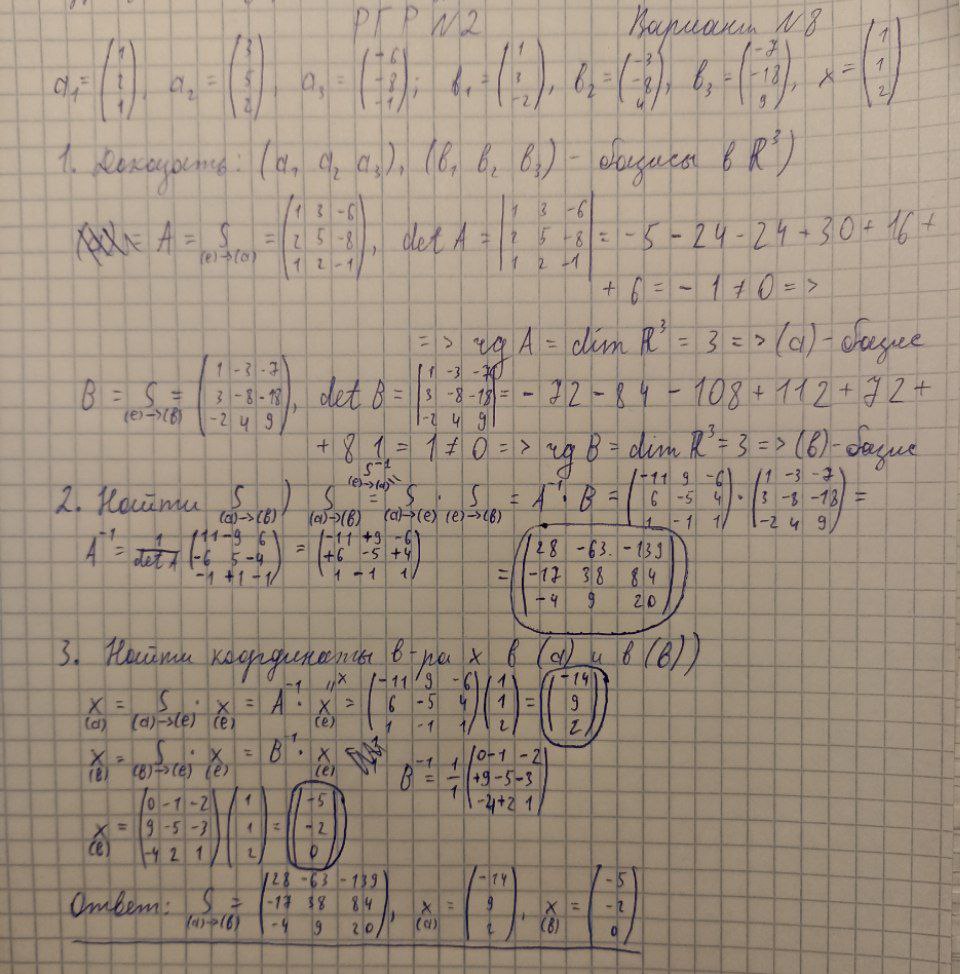 РГР N2 Вариант N8
a₁ = (1 2 1), a₂ = (3 5 2), a₃ = (-6 -8 -1); в₁ = (1 3 -2), в₂ = (-3 -8 4), в₃ = (-7 -18 9), x = (1 1 2)
1. Доказать: (a₁ a₂ a₃), (в₁ в₂ в₃) - базисы в ℝ³)
A = S (e)→(a) = (1 3 -6; 2 5 -8; 1 2 -1), det A = |1 3 -6; 2 5 -8; 1 2 -1| = -5 - 24 - 24 + 30 + 16 +
+ 6 = - 1 ≠ 0 =>
=> rg A = dim ℝ³ = 3 => (a) - базис
B = S (e)→(в) = (1 -3 -7; 3 -8 -18; -2 4 9), det B = |1 -3 -7; 3 -8 -18; -2 4 9| = - 72 - 84 - 108 + 112 + 72 +
+ 81 = 1 ≠ 0 => rg B = dim ℝ³ = 3 => (в) - базис
2. Найти S (a)→(в)) S (a)→(в) = S (a)→(e) · S (e)→(в) = A⁻¹ · B = (-11 9 -6; 6 -5 4; 1 -1 1) · (1 -3 -7; 3 -8 -18; -2 4 9) =
S⁻¹ (e)→(a) =
A⁻¹ = 1/det A (11 -9 6; -6 5 -4; -1 +1 -1) = (-11 +9 -6; +6 -5 +4; 1 -1 1)
= (28 -63 -139; -17 38 84; -4 9 20)
3. Найти координаты в-ра x в (a) и в (в))
x (a) = S (a)→(e) · x (e) = A⁻¹ · x (e) = (-11 9 -6; 6 -5 4; 1 -1 1) (1 1 2) = (-14 9 2)
x (в) = S (в)→(e) · x (e) = B⁻¹ · x (e) B⁻¹ = 1/1 (0 -1 -2; +9 -5 -3; -4 +2 1)
x (в) = (0 -1 -2; 9 -5 -3; -4 2 1) (1 1 2) = (-5 -2 0)
Ответ: S (a)→(в) = (28 -63 -139; -17 38 84; -4 9 20), x (a) = (-14 9 2), x (в) = (-5 -2 0)